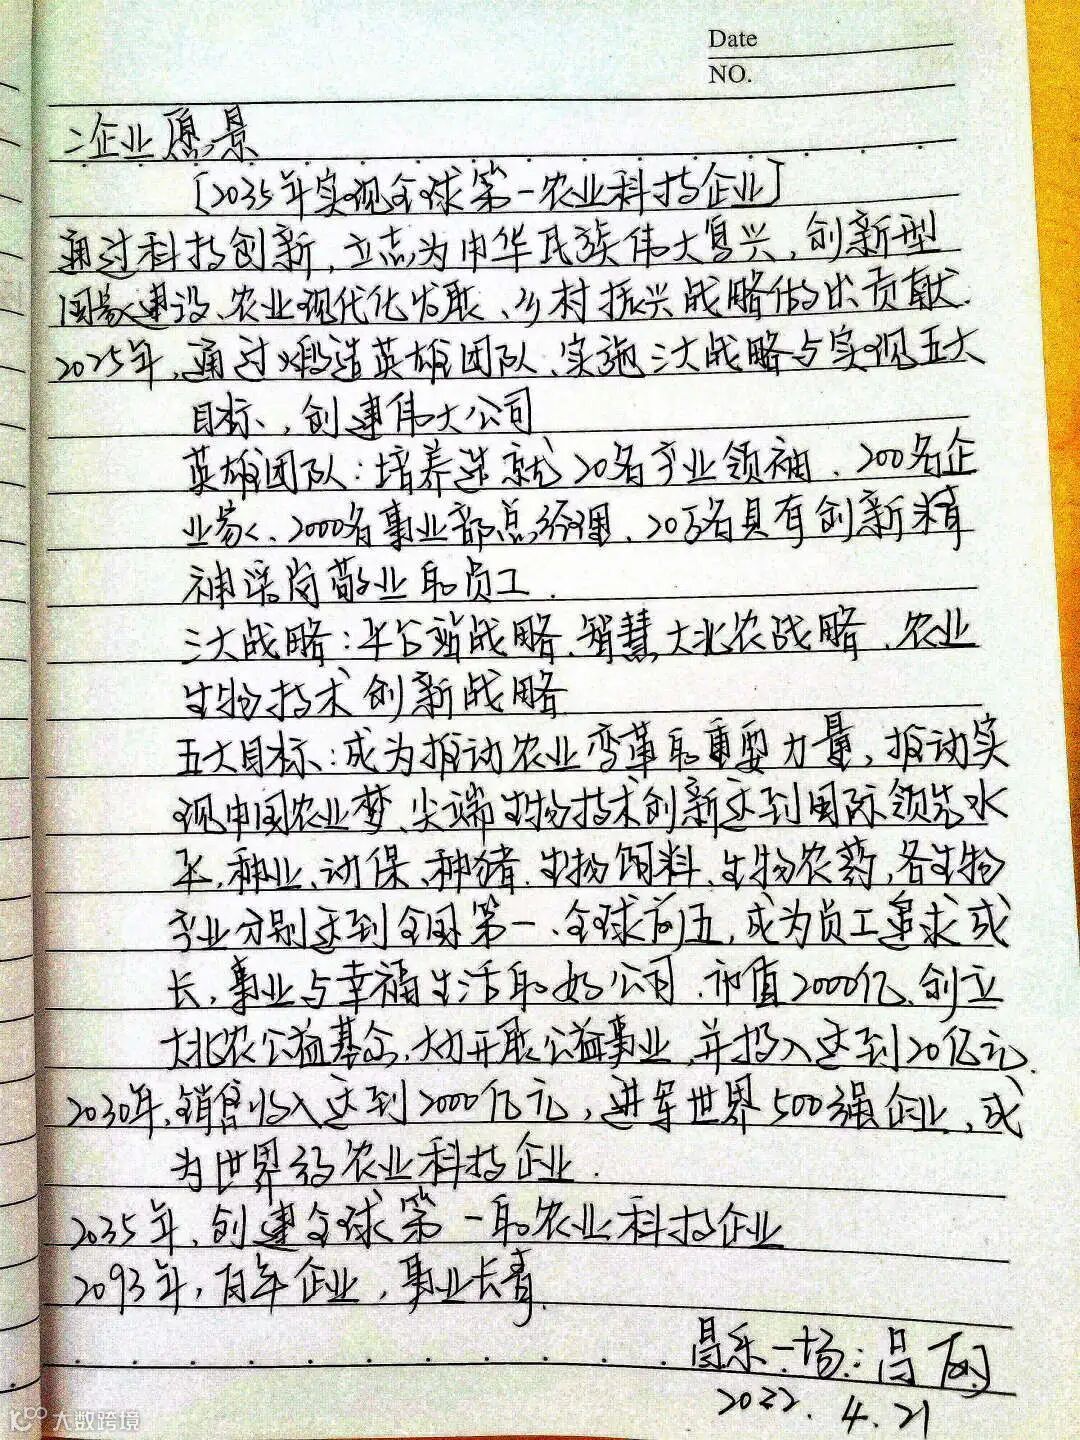 Date
NO.
二企业愿景
[2035年实现全球第一农业科技企业]
通过科技创新,立志为中华民族伟大复兴,创新型
国家建设、农业现代化发展、乡村振兴战略做出贡献.
2025年,通过煅造英雄团队、实施三大战略与实现五大
目标、,创建伟大公司
英雄团队:培养造就20名产业领袖、200名企
业家、2000名事业部总经理、20万名具有创新精
神爱岗敬业的员工.
三大战略:平台站战略、智慧大北农战略、农业
生物技术创新战略
五大目标:成为推动农业变革的重要力量,推动实
现中国农业梦、尖端生物技术创新达到国际领先水
平,种业、动保、种猪、生物饲料、生物农药,各生物
产业分别达到全国第一、全球前五,成为员工追求成
长,事业与幸福生活的好公司、市值2000亿、创立
大北农公益基金,大力开展公益事业,并投入达到20亿元.
2030年,销售收入达到2000亿元,进军世界500强企业,成
为世界级农业科技企业.
2035年,创建全球第一的农业科技企业
2093年,百年企业,事业长青.
昌乐一场:吕
2022.4.21
大数跨境